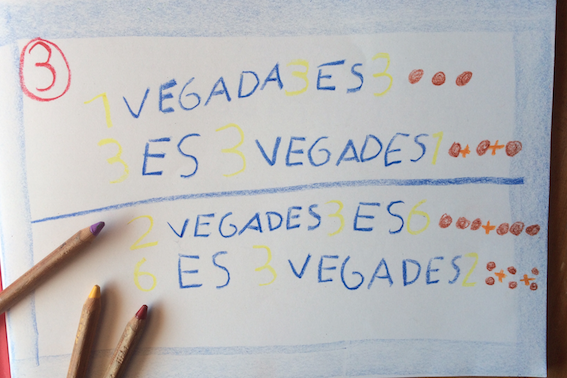 3
1 VEGADA 3 ES 3
3 ES 3 VEGADES 1 + +
2 VEGADES 3 ES 6 +
6 ES 3 VEGADES 2 + +